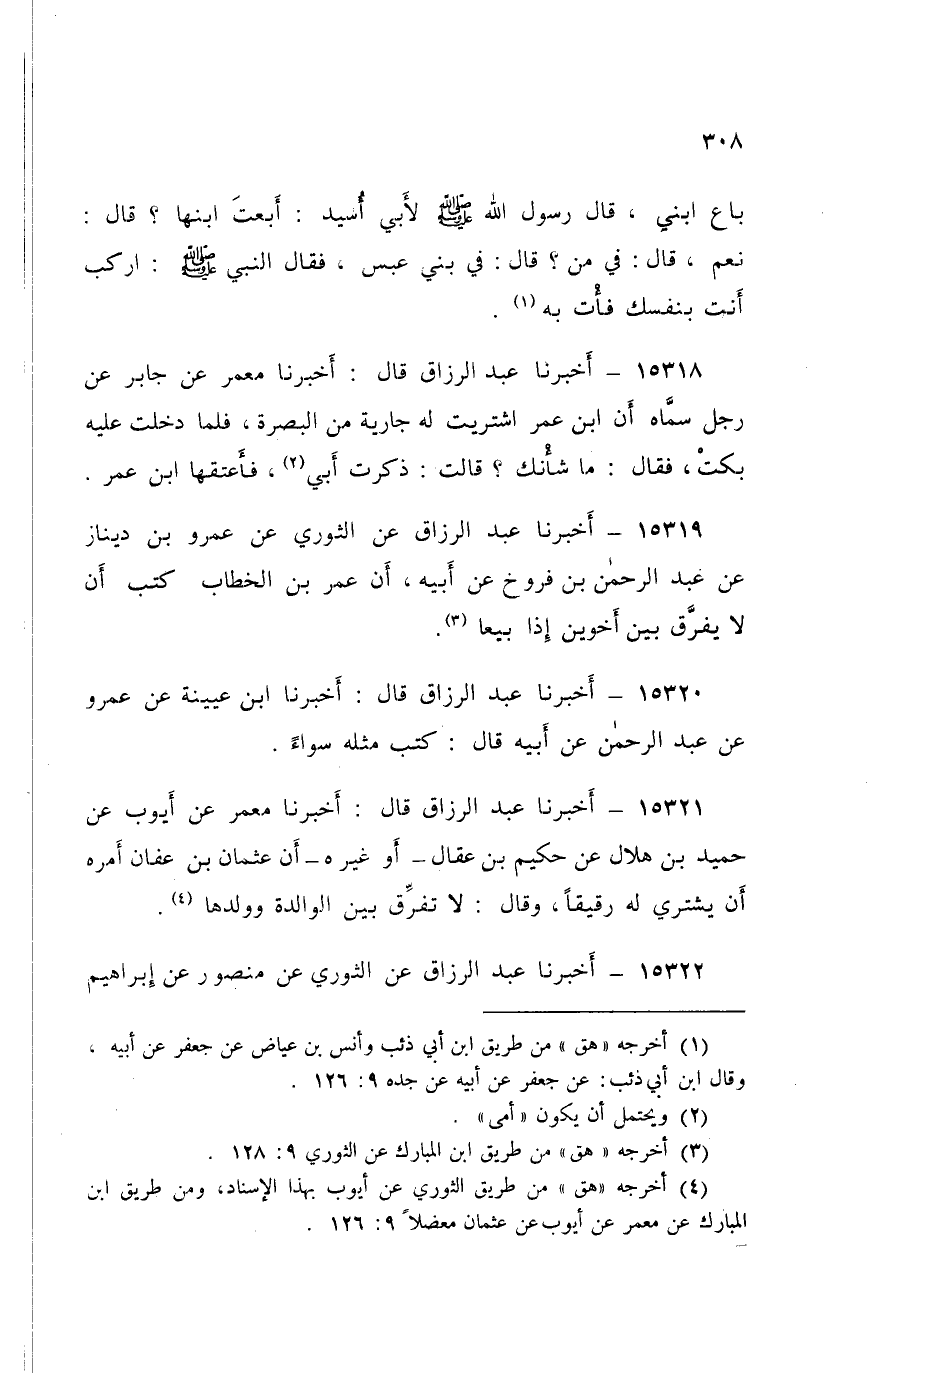 ٣٠٨
باع ابني ، قال رسول الله ﷺ لأَبي أُسيد : أَبعتَ ابنها ؟ قال :
نعم ، قال : في من ؟ قال : في بني عبس ، فقال النبي ﷺ : اركب
أَنت بنفسك فأْت به (١) .
١٥٣١٨ – أَخبرنا عبد الرزاق قال : أَخبرنا معمر عن جابر عن
رجل سمَّاه أَن ابن عمر اشتريت له جارية من البصرة ، فلما دخلت عليه
بكتْ ، فقال : ما شأْنك ؟ قالت : ذكرت أَبي (٢) ، فأَعتقها ابن عمر .
١٥٣١٩ – أَخبرنا عبد الرزاق عن الثوري عن عمرو بن دينار
عن عبد الرحمٰن بن فروخ عن أَبيه ، أَن عمر بن الخطاب كتب أَن
لا يفرَّق بين أَخوين إِذا بيعا (٣) .
١٥٣٢٠ – أَخبرنا عبد الرزاق قال : أَخبرنا ابن عيينة عن عمرو
عن عبد الرحمٰن عن أَبيه قال : كتب مثله سواءً .
١٥٣٢١ – أَخبرنا عبد الرزاق قال : أَخبرنا معمر عن أَيوب عن
حميد بن هلال عن حكيم بن عقال – أَو غيره – أَن عثمان بن عفان أَمره
أَن يشتري له رقيقاً ، وقال : لا تفرِّق بين الوالدة وولدها (٤) .
١٥٣٢٢ – أَخبرنا عبد الرزاق عن الثوري عن منصور عن إِبراهيم
(١) أخرجه « هق » من طريق ابن أبي ذئب وأنس بن عياض عن جعفر عن أبيه ،
وقال ابن أبي ذئب : عن جعفر عن أبيه عن جده ٩ : ١٢٦ .
(٢) ويحتمل أن يكون « أمى » .
(٣) أخرجه « هق » من طريق ابن المبارك عن الثوري ٩ : ١٢٨ .
(٤) أخرجه « هق » من طريق الثوري عن أيوب بهذا الإسناد، ومن طريق ابن
المبارك عن معمر عن أيوب عن عثمان معضلاً ٩ : ١٢٦ .